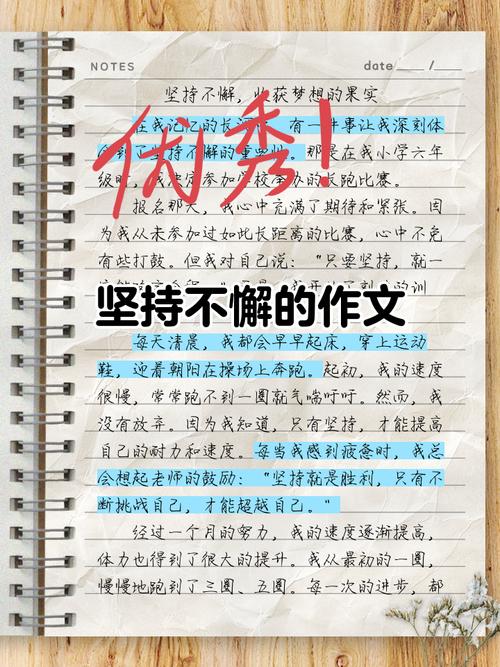 NOTES
date ____ / ____
坚持不懈，收获梦想的果实
优秀！
在我记忆的长河 有一件事让我深刻体
会到了坚持不懈的重要性。那是在我小学六年
级时，我决定参加学校举办的长跑比赛。
报名那天，我心中充满了期待和紧张。因
为我从未参加过如此长距离的比赛，心中不免
有些打鼓。但我对自己说："只要坚持，就一
训
坚持不懈的作文
每天清晨，我都会早早起床，穿上运动
鞋，迎着朝阳在操场上奔跑。起初，我的速度
很慢，常常跑不到一圈就气喘吁吁。然而，我
没有放弃。因为我知道，只有坚持，才能提高
自己的耐力和速度。每当我感到疲惫时，我总
会想起老师的鼓励："坚持就是胜利，只有不
断挑战自己，才能超越自己。"
经过一个月的努力，我的速度逐渐提高，
体力也得到了很大的提升。我从最初的一圈，
慢慢地跑到了三圈、五圈。每一次的进步，都